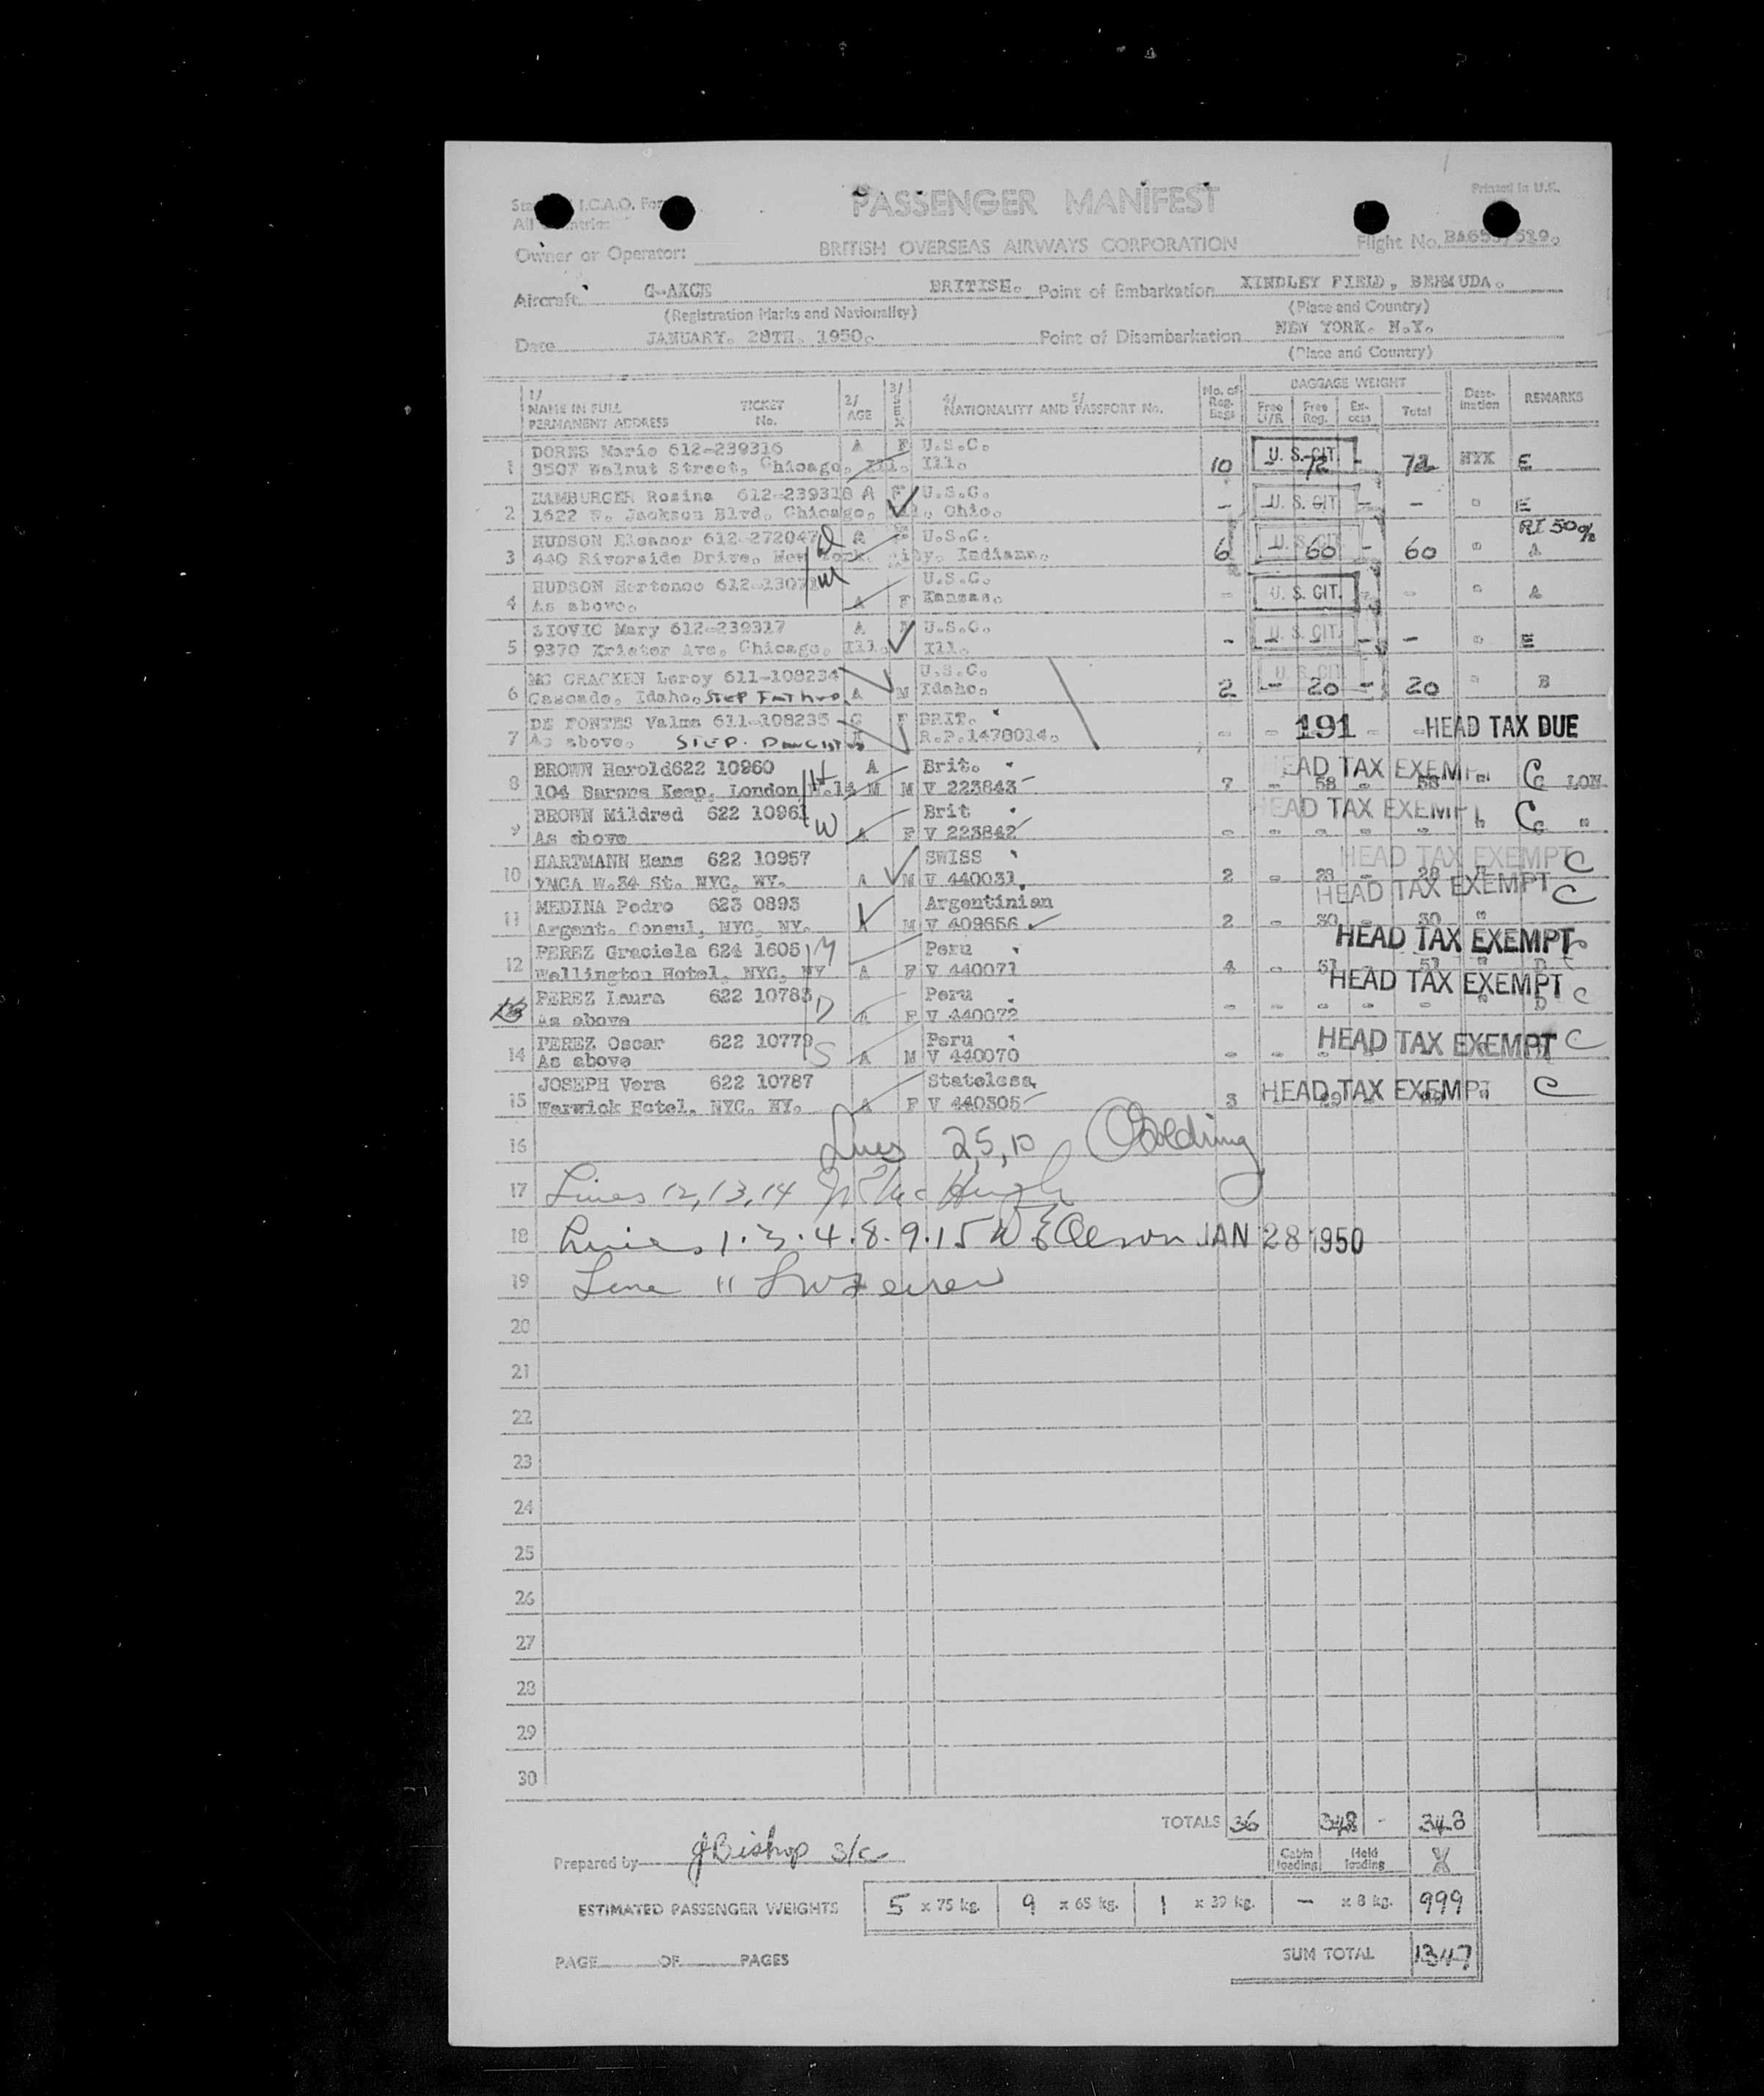 PASSENGER MANIFEST
Printed in U.K.
I.C.A.O.
All
Owner or Operator: BRITISH OVERSEAS AIRWAYS CORPORATION Flight No.
Aircraft G-AKCE BRITISH. Point of Embarkation KINDLEY FIELD, BERMUDA.
(Registration Marks and Nationality) (Place and Country)
Date JANUARY. 28TH. 1950. Point of Disembarkation NEW YORK. N.Y.
(Place and Country)
1/ NAME IN FULL PERMANENT ADDRESS TICKET No. 2/ AGE 3/ SEX 4/ 5/ NATIONALITY AND PASSPORT No. No. of Reg. Bags BAGGAGE WEIGHT Free U/R Free Reg. Ex-cess Total Dest-ination REMARKS
DORNS Marie 612-239316 A F U.S.C.
1 3507 Walnut Street, Chicago, Ill. Ill. 10 - 72 - 72 NYK E
U. S. CIT.
HAMBURGER Rosina 612-239318 A F U.S.C.
2 1622 W. Jackson Blvd. Chicago, Ill, Ohio. - U. S. CIT - - " E
HUDSON Eleanor 612-272047 D A F U.S.C. RI 50%
3 440 Riverside Drive. New York City. Indiana. 6 - 60 - 60 " A
U. S. CIT.
HUDSON Hortence M U.S.C.
4 As above. A F Kansas. - U. S. CIT. - - " A
Mary 612-239317 A F U.S.C.
5 9370 Ave. Chicago. Ill. Ill. - - - - - " E
U. S. CIT.
MC CRACKEN Leroy 611-108234 U.S.C.
6 Cascade, Idaho. STEP FATHER A M Idaho. 2 - 20 - 20 " B
U. S. CIT
DE FONTES Valma 611-108235 C F BRIT.
7 As above. STEP. R.P.1478014. - - 191 - HEAD TAX DUE
BROWN Harold 622 10960 H A Brit.
8 104 Barons Keep, London W.14 M M V 223843 7 - 58 - 58 C LON
HEAD TAX EXEMPT
BROWN Mildred 622 10961 W Brit
9 As above A F V 223842 - - - - - C "
HEAD TAX EXEMPT
HARTMANN Hans 622 10957 SWISS
10 YMCA W.34 St. NYC, NY. A M V 440031. 2 - 28 - 28 " C
HEAD TAX EXEMPT
MEDINA Pedro 623 0893 Argentinian
11 Argent. Consul, NYC, NY. A M V 409656 2 - 30 - 30 " C
HEAD TAX EXEMPT
PEREZ Graciela 624 1605 M Peru
12 Wellington Hotel, NYC, NY A F V 440071 4 - 51 - 51 " D C
HEAD TAX EXEMPT
PEREZ Laura 622 10783 D Peru
13 As above A F V 440072 - - - - - " D C
HEAD TAX EXEMPT
PEREZ Oscar 622 10779 S Peru
14 As above A M V 440070 - - - C
HEAD TAX EXEMPT
JOSEPH Vera 622 10787 Stateless
15 Warwick Hotel, NYC, NY. A F V 440305 3 29 " C
HEAD TAX EXEMPT
16 Lines 2,5,10 Golding
17 Lines 12,13,14 Mc Hugh
18 Lines 1.3.4.8.9.15 W E Olsson JAN 28 1950
19 Line 11
20
21
22
23
24
25
26
27
28
29
30
TOTALS 36 348 - 348
Prepared by J Bishop S/C Cabin loading Hold loading
ESTIMATED PASSENGER WEIGHTS 5 x 75 kg. 9 x 65 kg. 1 x 39 kg. - x 8 kg. 999
PAGE OF PAGES SUM TOTAL 1347